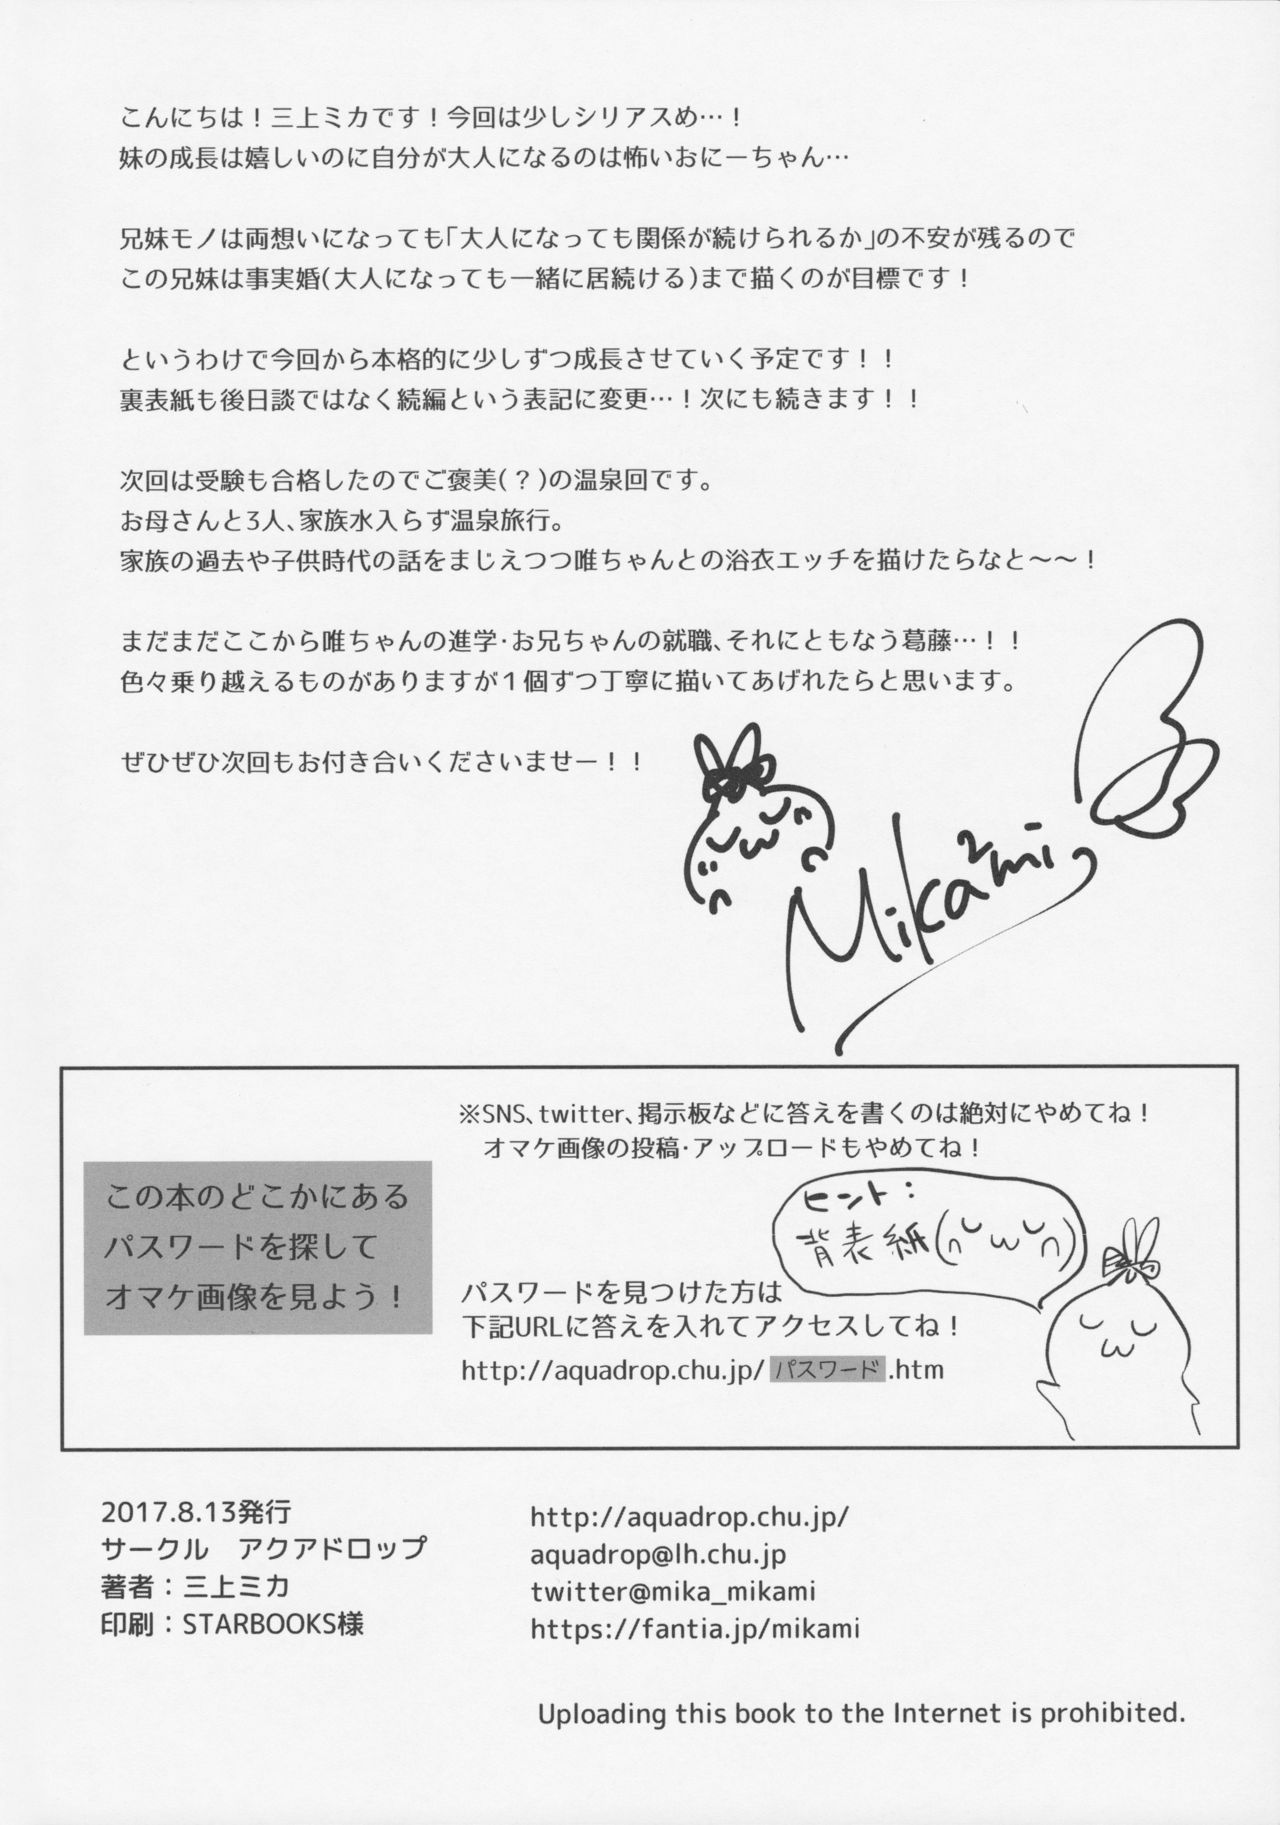 こんにちは！三上ミカです！今回は少しシリアスめ…！
妹の成長は嬉しいのに自分が大人になるのは怖いおにーちゃん…
兄妹モノは両想いになっても「大人になっても関係が続けられるか」の不安が残るので
この兄妹は事実婚(大人になっても一緒に居続ける)まで描くのが目標です！
というわけで今回から本格的に少しずつ成長させていく予定です！！
裏表紙も後日談ではなく続編という表記に変更…！次にも続きます！！
次回は受験も合格したのでご褒美(？)の温泉回です。
お母さんと3人、家族水入らず温泉旅行。
家族の過去や子供時代の話をまじえつつ唯ちゃんとの浴衣エッチを描けたらなと〜〜！
まだまだここから唯ちゃんの進学・お兄ちゃんの就職、それにともなう葛藤…！！
色々乗り越えるものがありますが１個ずつ丁寧に描いてあげれたらと思います。
ぜひぜひ次回もお付き合いくださいませー！！
Mika2mi
※SNS、twitter、掲示板などに答えを書くのは絶対にやめてね！
オマケ画像の投稿・アップロードもやめてね！
この本のどこかにある
パスワードを探して
オマケ画像を見よう！
ヒント：
背表紙
パスワードを見つけた方は
下記URLに答えを入れてアクセスしてね！
http://aquadrop.chu.jp/ パスワード .htm
2017.8.13発行
サークル　アクアドロップ
著者：三上ミカ
印刷：STARBOOKS様
http://aquadrop.chu.jp/
aquadrop@lh.chu.jp
twitter@mika_mikami
https://fantia.jp/mikami
Uploading this book to the Internet is prohibited.